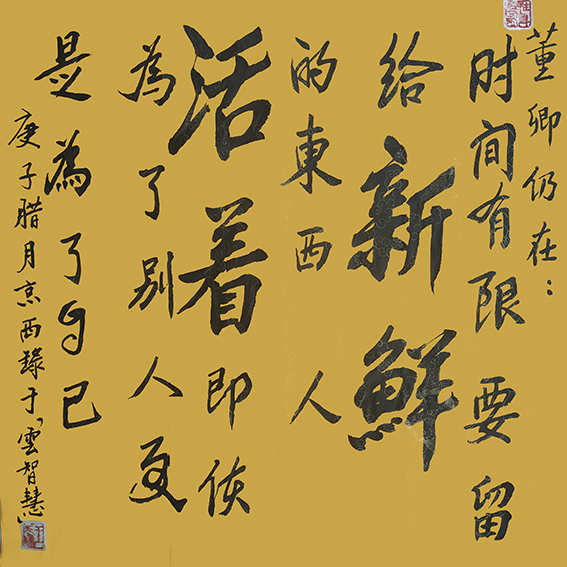 董卿仍在：
时间有限要留
给新鲜
的東西人
活着即使
為了别人更
是為了自己
庚子腊月京西錄于“雲智慧”